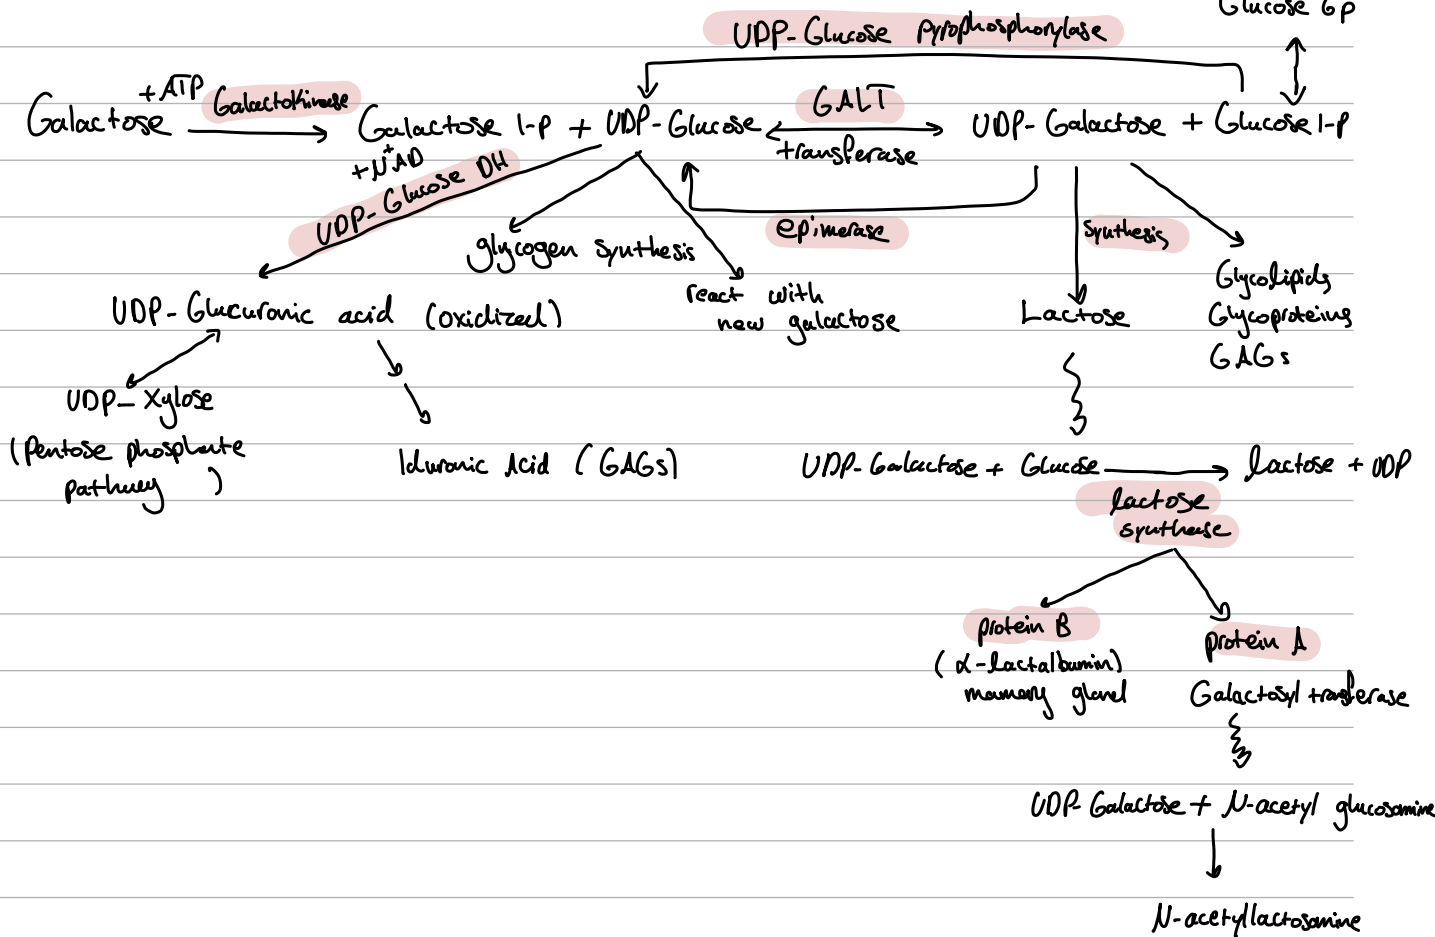 Glucose 6p
UDP-Glucose pyrophosphorylase
Galactose
+ATP
Galactokinase
Galactose 1-p + UDP-Glucose
GALT
transferase
UDP-Galactose + Glucose 1-p
+NAD+
UDP-Glucose DH
glycogen synthesis
epimerase
synthesis
react with
new galactose
Lactose
Glycolipids
Glycoproteins
GAGs
UDP-Glucuronic acid (oxidized)
UDP-Xylose
(Pentose phosphate
pathway)
Iduronic Acid (GAGs)
UDP-Galactose + Glucose
lactose + UDP
lactose
synthase
protein B
(α-lactalbumin)
mamary gland
protein A
Galactosyl transferase
UDP-Galactose + N-acetyl glucosamine
N-acetyllactosamine